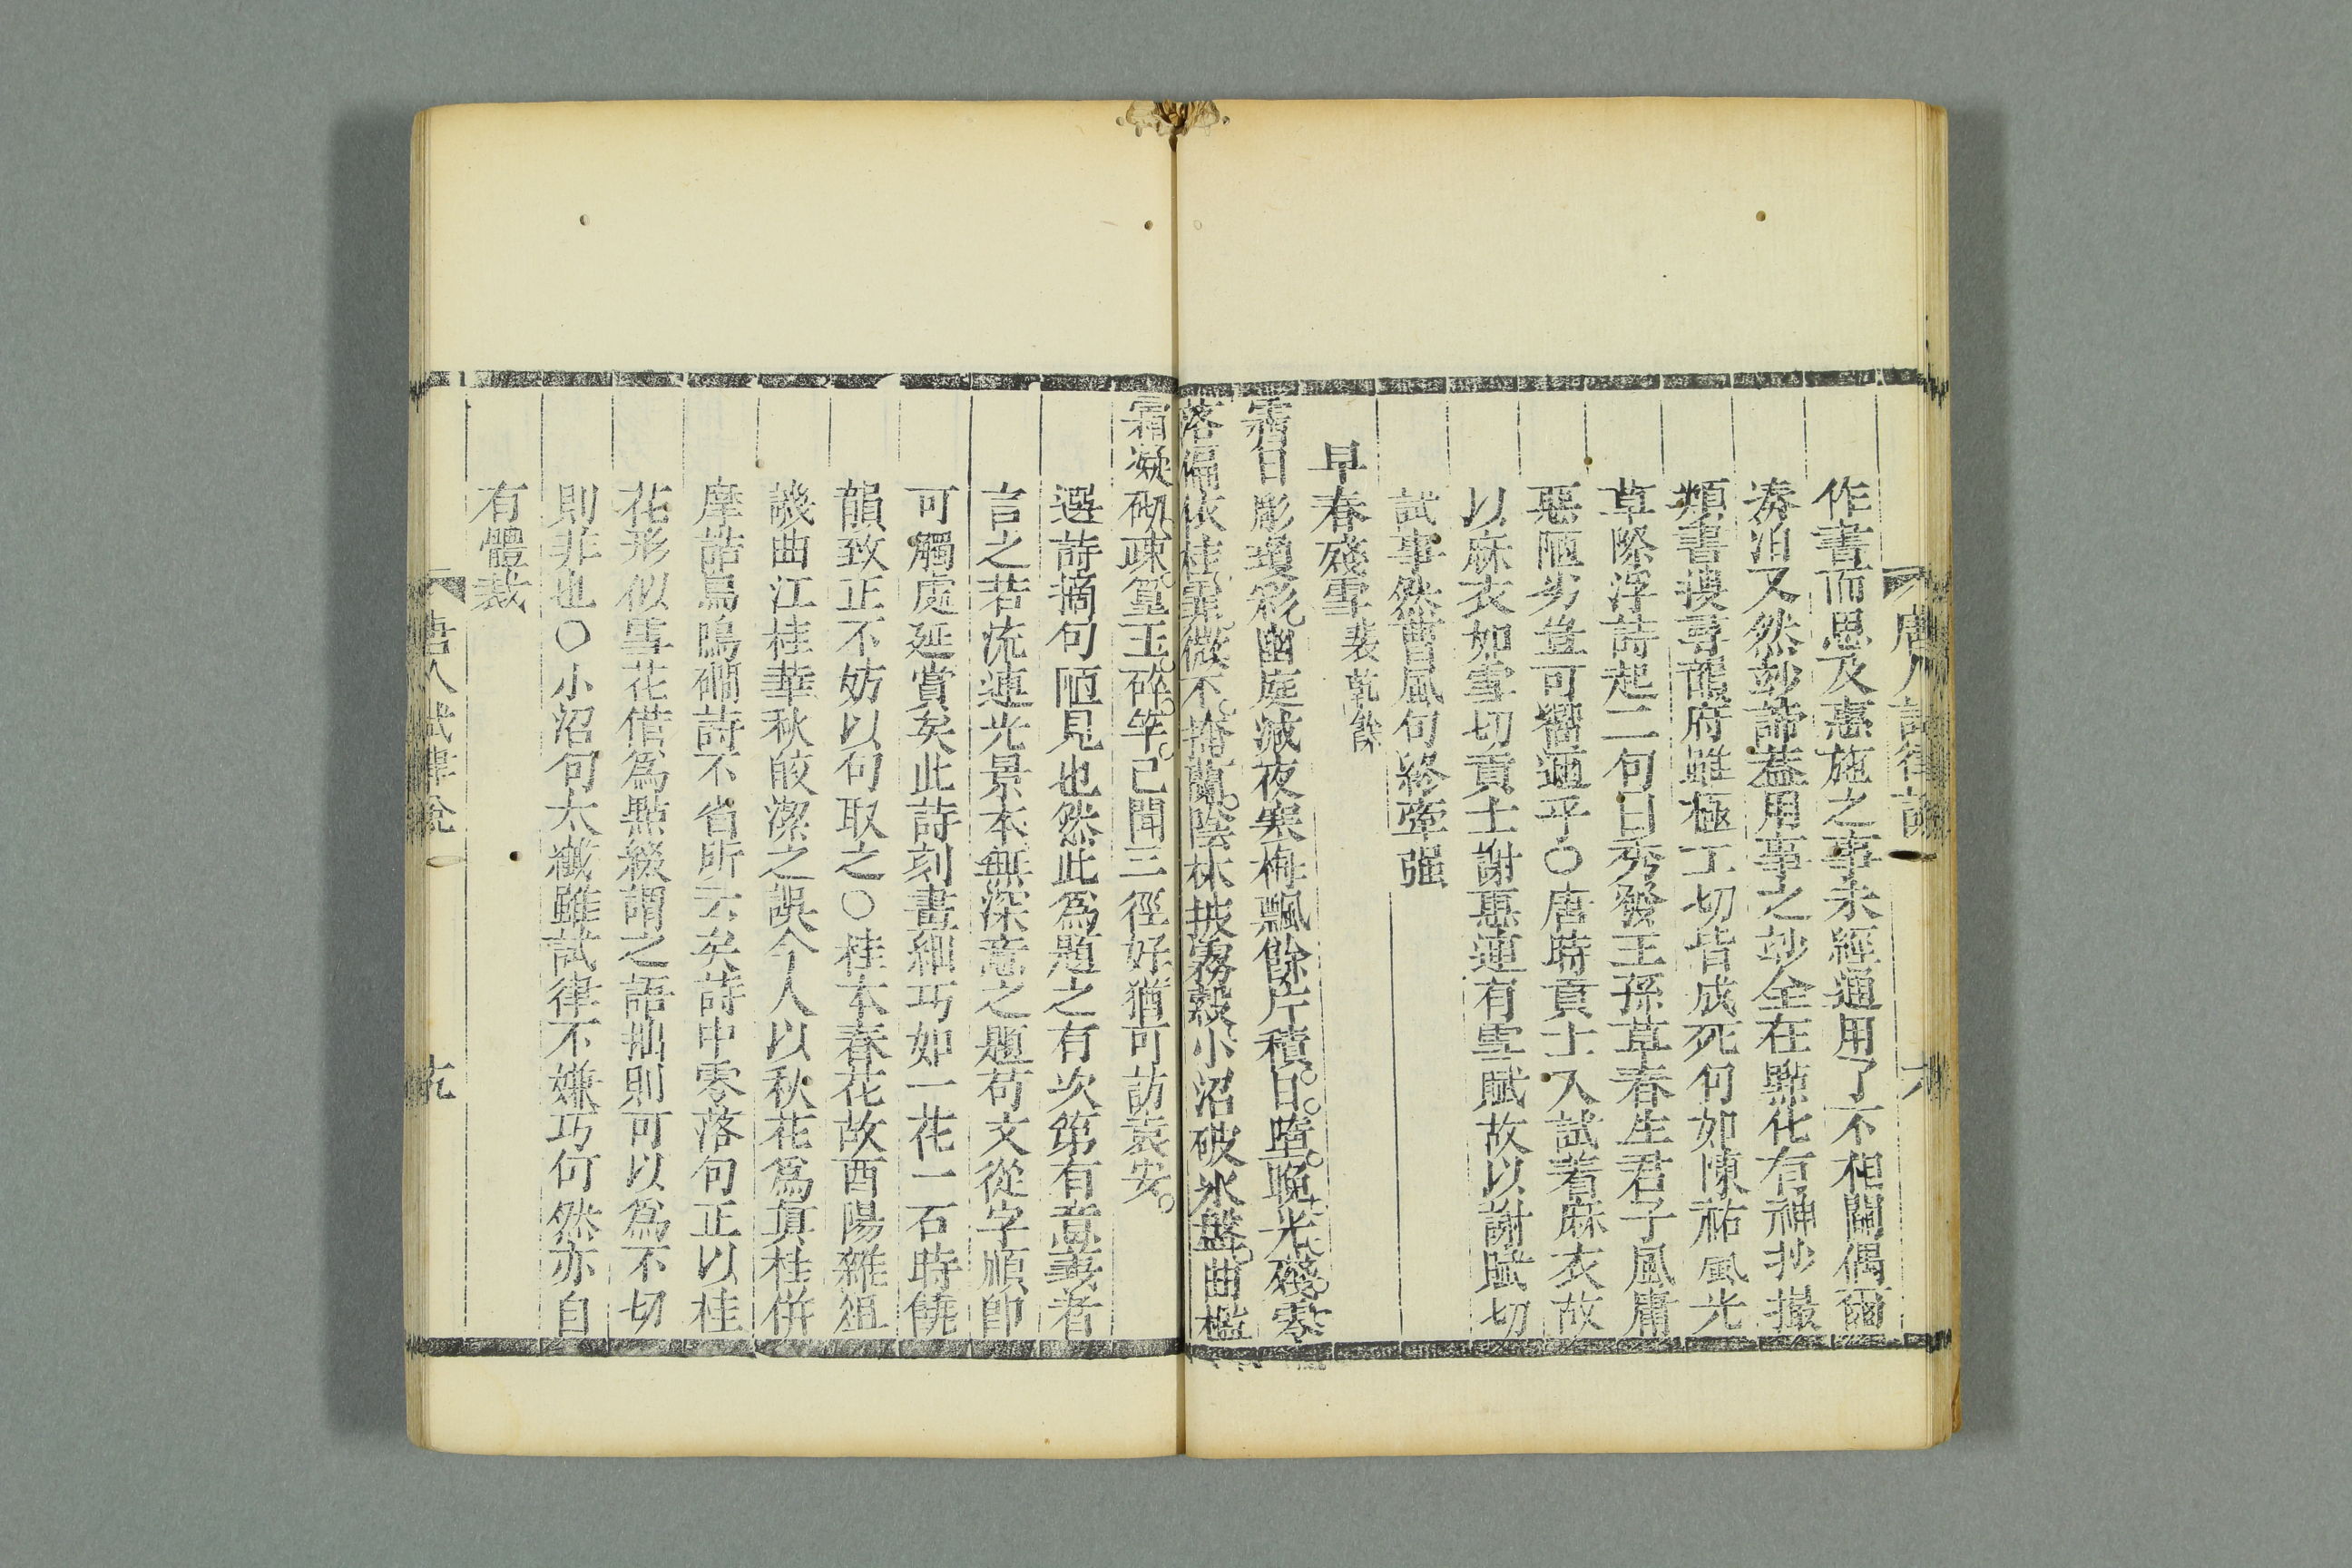 唐人試律說
六
作書而思及憙施之事未經適用了不相關偶爾
湊泊又然妙諦葢用事之妙全在點化有神抄撮
類書搜尋韻府雖極工切皆成死句如陳祐風光
草際浮詩起二句曰秀發王孫草春生君子風庸
惡陋劣豈可嚮邇乎○唐時貢士入試着麻衣故
以麻衣如雪切貢士謝惠連有雪賦故以謝賦切
試事然曹風句終牽强
早春殘雪裴乾餘
霽日彫瓊彩幽庭減夜寒梅飄餘片積日墮晚光殘零
落偏依桂霏微不掩蘭陰林披霧縠小沼破冰盤曲檻
霜凝砌疎篁玉碎竿已聞三徑好猶可訪袁安
選詩摘句陋見也然此爲題之有次第有意義者
言之若流連光景本無深意之題苟文從字順卽
可觸處延賞矣此詩刻畫細巧如一花一石時饒
韻致正不妨以句取之○桂本春花故酉陽雜俎
譏曲江桂華秋皎潔之誤今人以秋花爲眞桂併
摩詰鳥鳴磵詩不省所云矣詩中零落句正以桂
花形似雪花借爲點綴謂之語拙則可以爲不切
則非也○小沼句太纖雖試律不嫌巧何然亦自
有體裁
唐人試律說